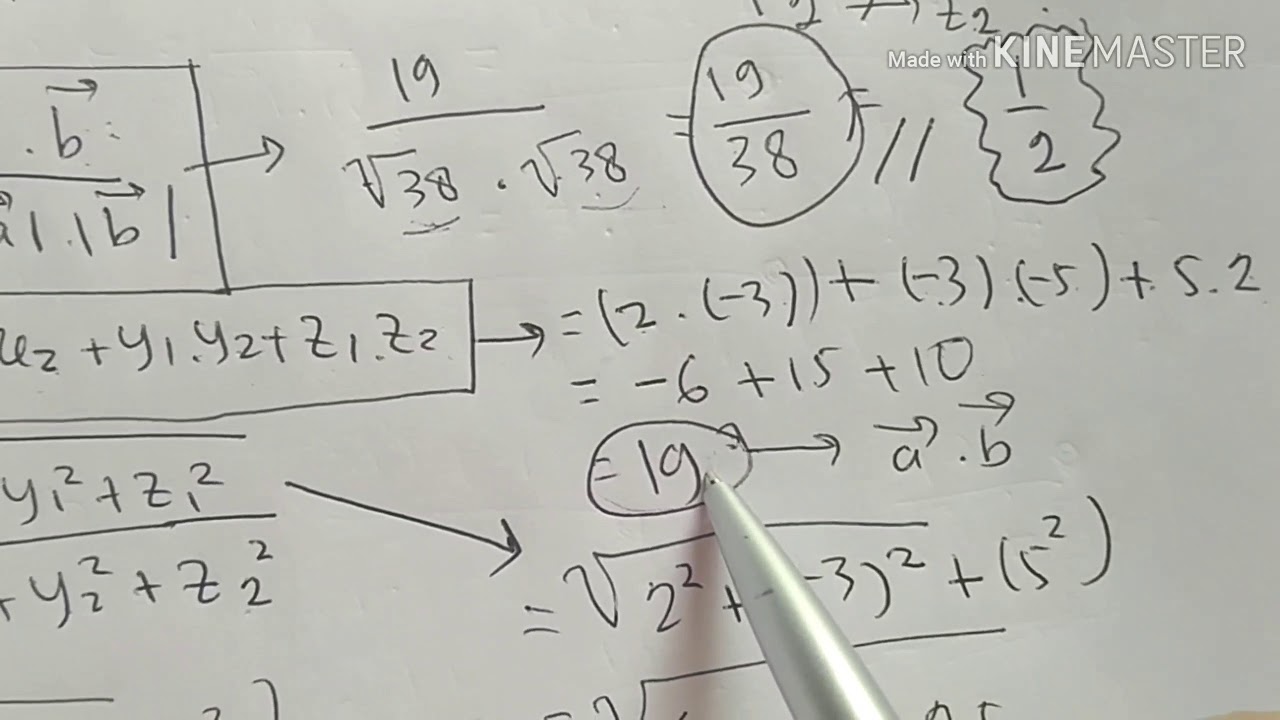 Made with KINEMASTER
. b⃗ / a⃗|.|b⃗| → 19 / √38 . √38 = 19/38 = // 1/2
x₂ + y₁.y₂ + z₁.z₂ → = (2 . (-3)) + (-3).(-5) + 5.2
= -6 + 15 + 10
= 19 → a⃗ . b⃗
y₁² + z₁²
+ y₂² + z₂²
= √2² + -3)² + (5²)